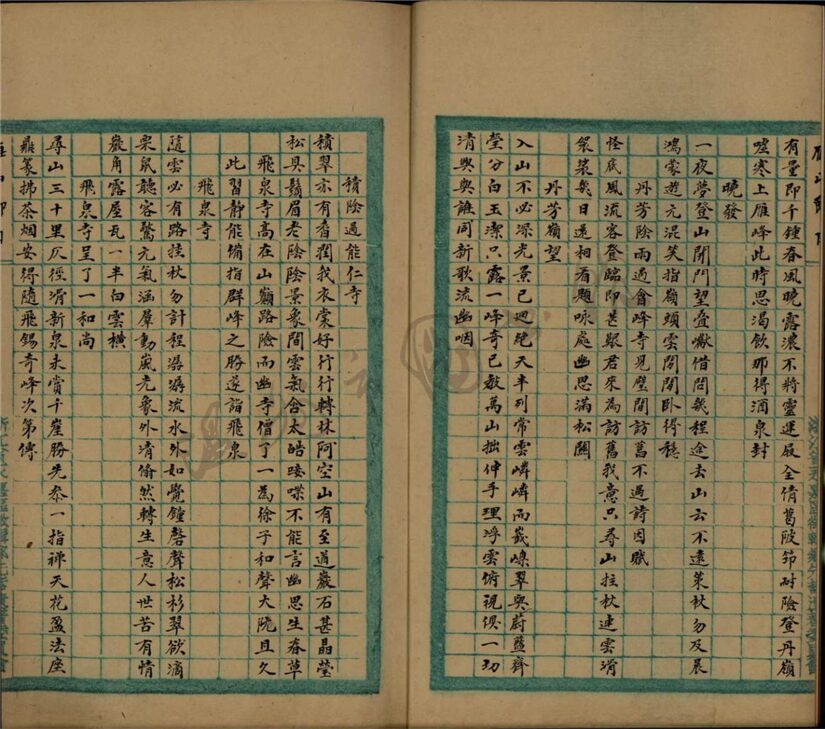 有量即千鍾春風曉露濃不將靈運屐全倩葛陂筇耐險登丹嶺
噓寒上雁峰此時思渴飲那得酒泉封
曉發
一夜夢登山開門望叠巘借問幾程途去山云不遠策杖勿及晨
鴻蒙遊元混笑指嶺頭雲閒閒卧得穩
丹芳陰雨過會峰寺見壁間訪舊不遇詩因賦
怪底風流客登臨即甚艱君來為訪舊我意只尋山拄杖連雲滑
袈裟幾日還相看題咏處幽思滿松關
丹芳嶺望
入山不必深光景已迥絶天半列常雲嶙嶙而嶻嵲翠與蔚藍齊
瑩分白玉潔只露一峰奇已教萬山拙伸手理浮雲俯視俱一切
清輿與誰同新歌流幽咽
積陰過能仁寺
積翠亦有香潤我衣棠好行行轉林阿空山有至道巖石甚晶瑩
松具鬚眉老陰陰景象間雲氣含太皓唼喋不能言幽思生春草
飛泉寺高在山巔路險而幽寺僧了一為徐子和聲大曉且久
此習靜能備指群峰之勝遂詣飛泉
飛泉寺
隨雲必有路拄杖勿計程潺潺流水外如覺鐘磬聲松杉翠欲滴
栗鼠聽容驚元氣涵羣動嵐光象外清翛然轉生意人世苦有情
巖角露屋瓦一半白雲横
飛泉寺呈了一和尚
尋山三十里仄徑滑新泉未賞千崖勝先叅一指禅天花盈法座
鼎篆拂茶烟安得隨飛錫奇峰次第傳